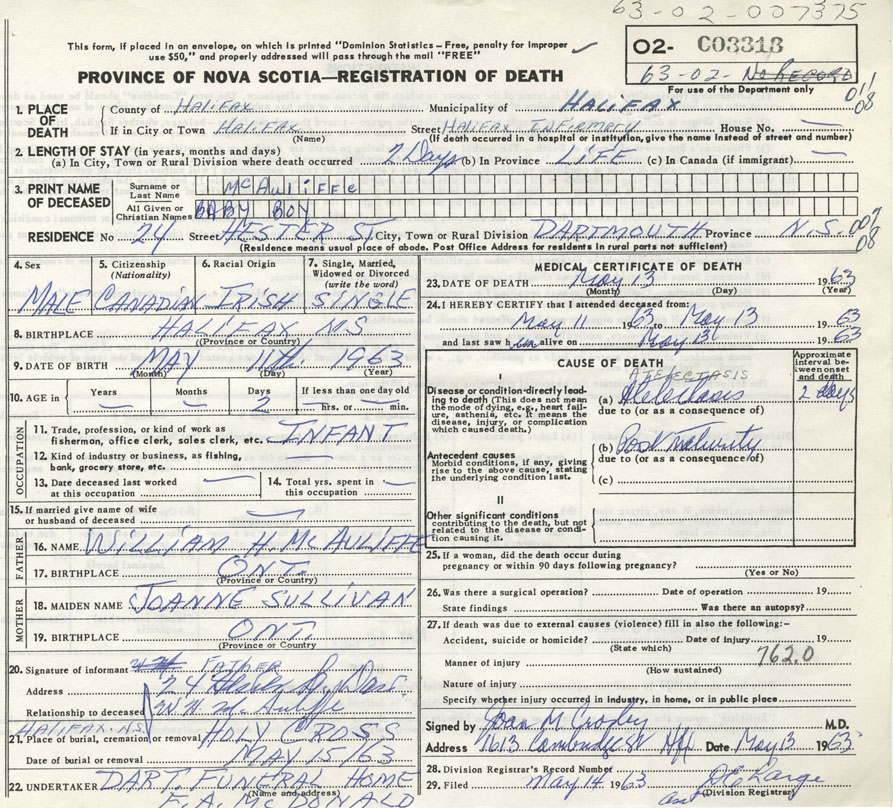 63-02-007375
This form, if placed in an envelope, on which is printed "Dominion Statistics – Free, penalty for improper
use $50," and properly addressed will pass through the mail "FREE"
02- C03313
PROVINCE OF NOVA SCOTIA—REGISTRATION OF DEATH
63-02- No RECORD
For use of the Department only
011
08
1. PLACE OF DEATH
County of Halifax Municipality of HALIFAX
If in City or Town Halifax Street Halifax Infirmary House No. —
(Name) (If death occurred in hospital or institution, give the name instead of street and number)
2. LENGTH OF STAY (in years, months and days)
(a) In City, Town or Rural Division where death occurred 2 Days (b) In Province LIFE (c) In Canada (if immigrant) —
3. PRINT NAME OF DECEASED
Surname or Last Name McAuliffe
All Given or Christian Names BABY BOY
RESIDENCE No 24 Street HESTER ST. City, Town or Rural Division DARTMOUTH Province N.S.
(Residence means usual place of abode. Post Office Address for residents in rural parts not sufficient)
08
4. Sex MALE
5. Citizenship (Nationality) CANADIAN
6. Racial Origin IRISH
7. Single, Married, Widowed or Divorced (write the word) SINGLE
8. BIRTHPLACE HALIFAX N.S.
(Province or Country)
9. DATE OF BIRTH MAY 11th. 1963
(Month) (Day) (Year)
10. AGE in Years — Months — Days 2 If less than one day old — hrs. or — min.
OCCUPATION
11. Trade, profession, or kind of work as
fisherman, office clerk, sales clerk, etc. INFANT
12. Kind of industry or business, as fishing,
bank, grocery store, etc. —
13. Date deceased last worked
at this occupation —
14. Total yrs. spent in
this occupation —
15. If married give name of wife
or husband of deceased —
FATHER
16. NAME WILLIAM H. MCAULIFFE
17. BIRTHPLACE ONT.
(Province or Country)
MOTHER
18. MAIDEN NAME JOANNE SULLIVAN
19. BIRTHPLACE ONT.
(Province or Country)
20. Signature of informant FATHER
Address 24 Hester St. Dart.
Relationship to deceased W. H. McAuliffe
HALIFAX. N.S.
21. Place of burial, cremation or removal HOLY CROSS
Date of burial or removal MAY 15/63
22. UNDERTAKER DART. FUNERAL HOME
(Name and address)
F. A. McDONALD
MEDICAL CERTIFICATE OF DEATH
23. DATE OF DEATH May 13 1963
(Month) (Day) (Year)
24. I HEREBY CERTIFY that I attended deceased from:
May 11 1963 to May 13 1963
and last saw him alive on May 13 1963
CAUSE OF DEATH
Approximate interval between onset and death
I
ATELECTASIS
Disease or condition directly leading to death (This does not mean the mode of dying, e.g., heart failure, asthenia, etc. It means the disease, injury, or complication which caused death.)
(a) Atelectasis 2 days
due to (or as a consequence of)
Antecedent causes
Morbid conditions, if any, giving rise to the above cause, stating the underlying condition last.
(b) Post maturity
due to (or as a consequence of)
(c)
II
Other significant conditions
contributing to the death, but not related to the disease or condition causing it.
25. If a woman, did the death occur during
pregnancy or within 90 days following pregnancy?
(Yes or No)
26. Was there a surgical operation? Date of operation 19
State findings Was there an autopsy?
27. If death was due to external causes (violence) fill in also the following:-
Accident, suicide or homicide? Date of injury 19
(State which)
762.0
Manner of injury
(How sustained)
Nature of injury
Specify whether injury occurred in industry, in home, or in public place
Signed by Joan M. M.D.
Address Hfx Date May 13 1963
28. Division Registrar's Record Number
29. Filed May 14 1963
(Division Registrar)